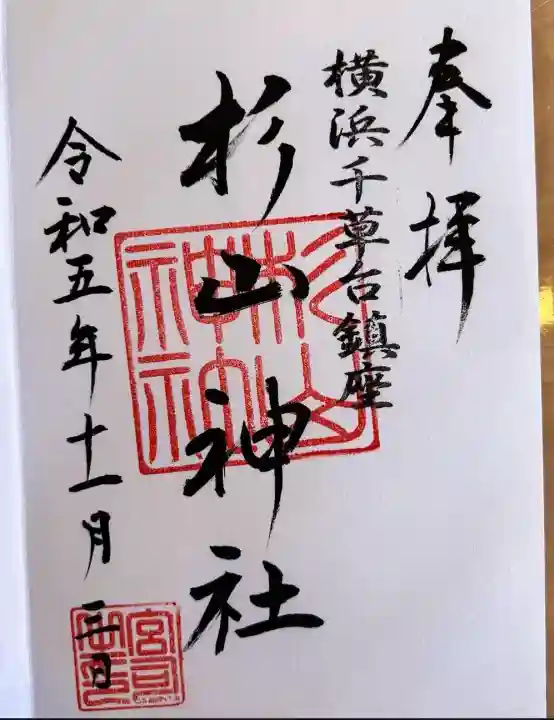 奉拝
横浜千草台鎮座
杉山神社
令和五年十一月三日
杉山神社
宮司